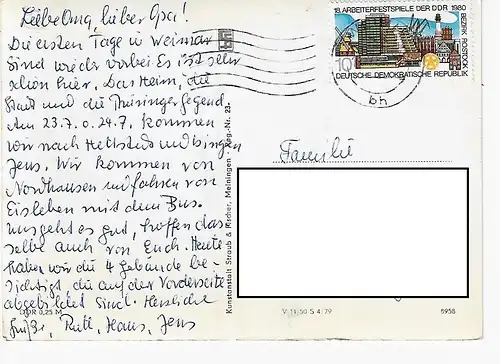 Liebe Oma, lieber Opa!
Die ersten Tage in Weimar
sind wieder vorbei. Es ist sehr
schön hier. Das Heim, die
Stadt und die Thüringer Gegend.
Am 23.7. o. 24.7. kommen
wir nach Hettstedt und bringen
Jens. Wir kommen von
Nordhausen und fahren von
Eisleben mit dem Bus.
Uns geht es gut, hoffen das
selbe auch von Euch. Heute
haben wir die 4 gebäude be-
sichtigt, die auf der Vorderseite
abgebildet sind. Herzliche
Grüße, Rutl, Hans, Jens
DDR 0,25 M
Kunstanstalt Straub & Fischer, Meiningen · Rep.-Nr. 23
18. ARBEITERFESTSPIELE DER DDR 1980
BEZIRK ROSTOCK
10
DEUTSCHE DEMOKRATISCHE REPUBLIK
bh
Familie
V 11 50 S 4/79
5958